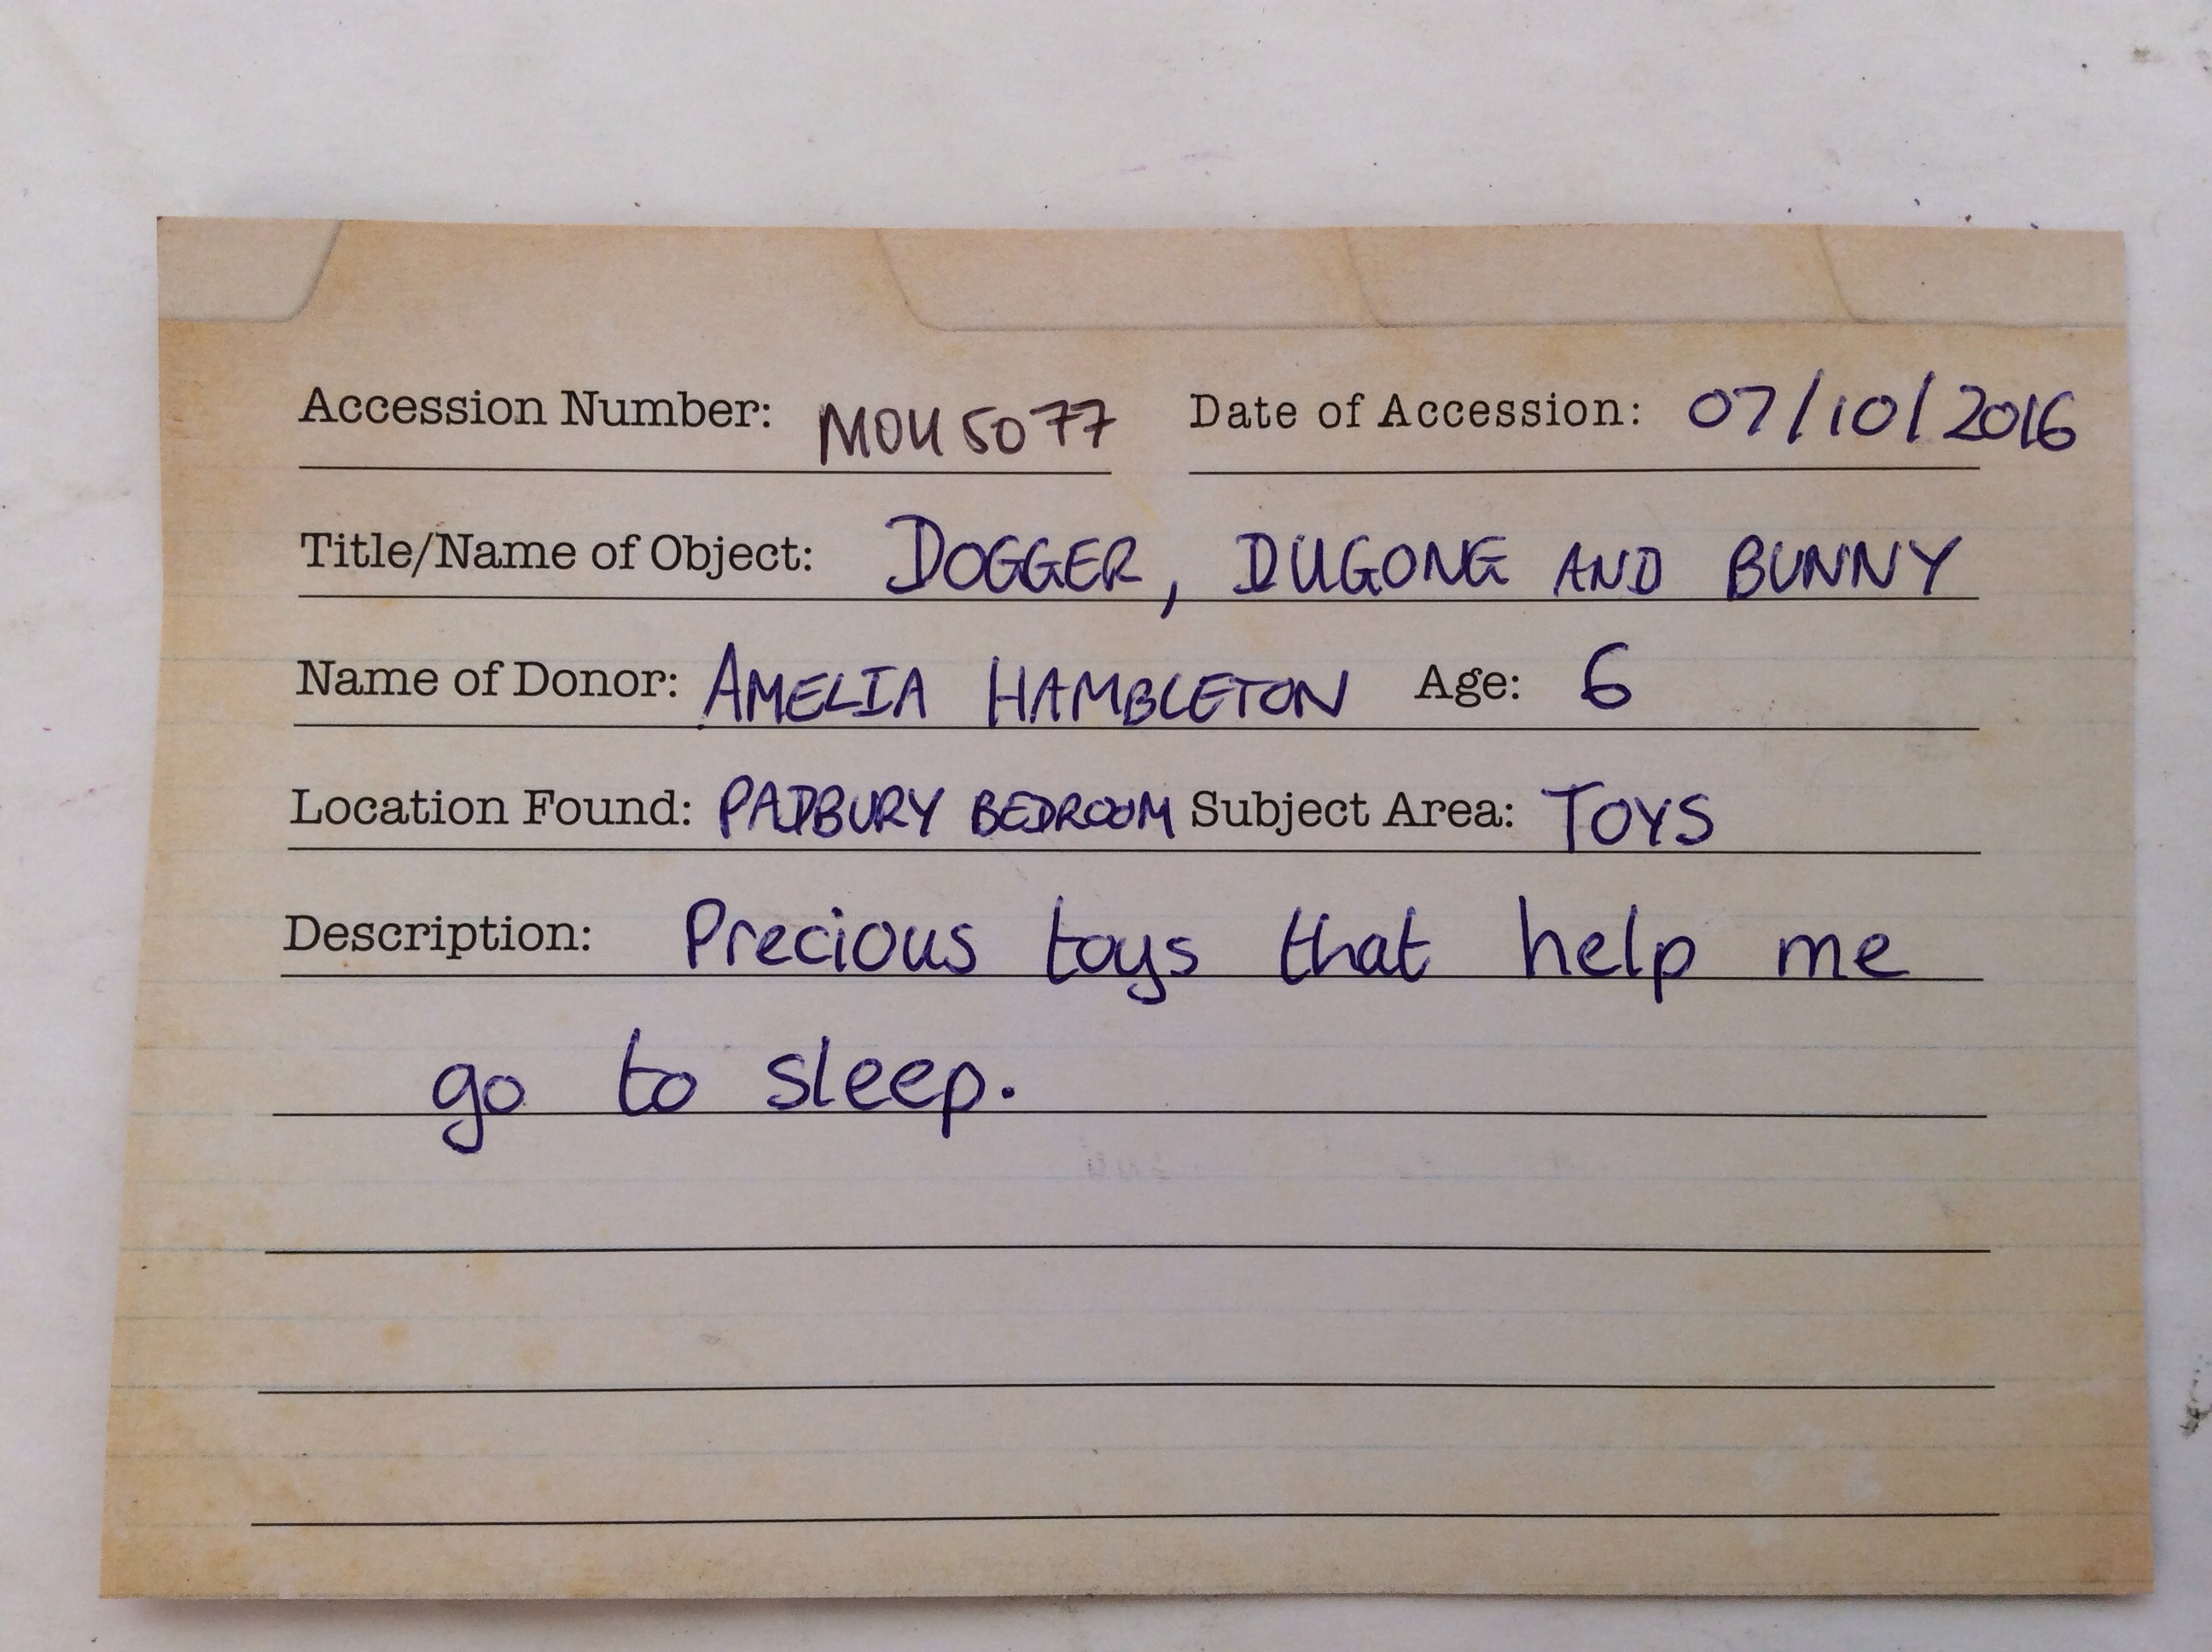 Accession Number: MOU5077 Date of Accession: 07/10/2016
Title/Name of Object: DOGGER, DUGONG AND BUNNY
Name of Donor: AMELIA HAMBLETON Age: 6
Location Found: PADBURY BEDROOM Subject Area: TOYS
Description: Precious toys that help me
go to sleep.